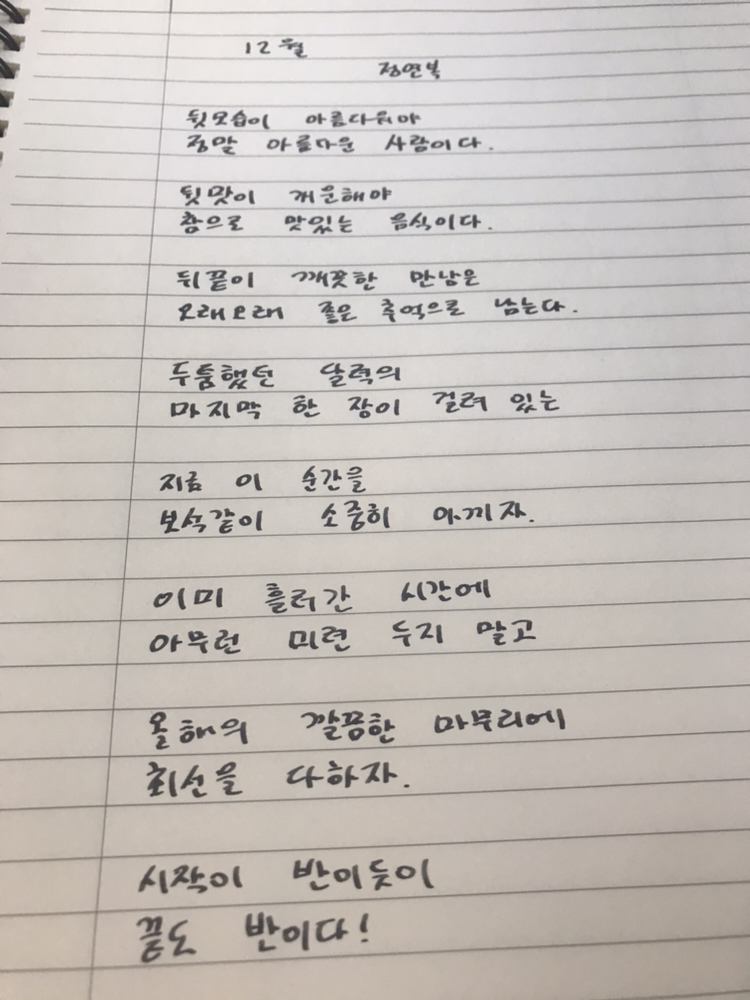 12월
정연복
뒷모습이 아름다워야
정말 아름다운 사람이다.
뒷맛이 개운해야
참으로 맛있는 음식이다.
뒤끝이 깨끗한 만남은
오래오래 좋은 추억으로 남는다.
두툼했던 달력의
마지막 한 장이 걸려 있는
지금 이 순간을
보석같이 소중히 아끼자.
이미 흘러간 시간에
아무런 미련 두지 말고
올해의 깔끔한 마무리에
최선을 다하자.
시작이 반이듯이
끝도 반이다!